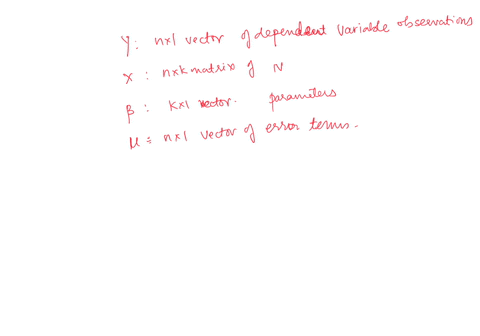 Y: n×1 vector of dependent variable observations
X: n×k matrix of N
β: k×1 vector. parameters
μ = n×1 vector of error terms.